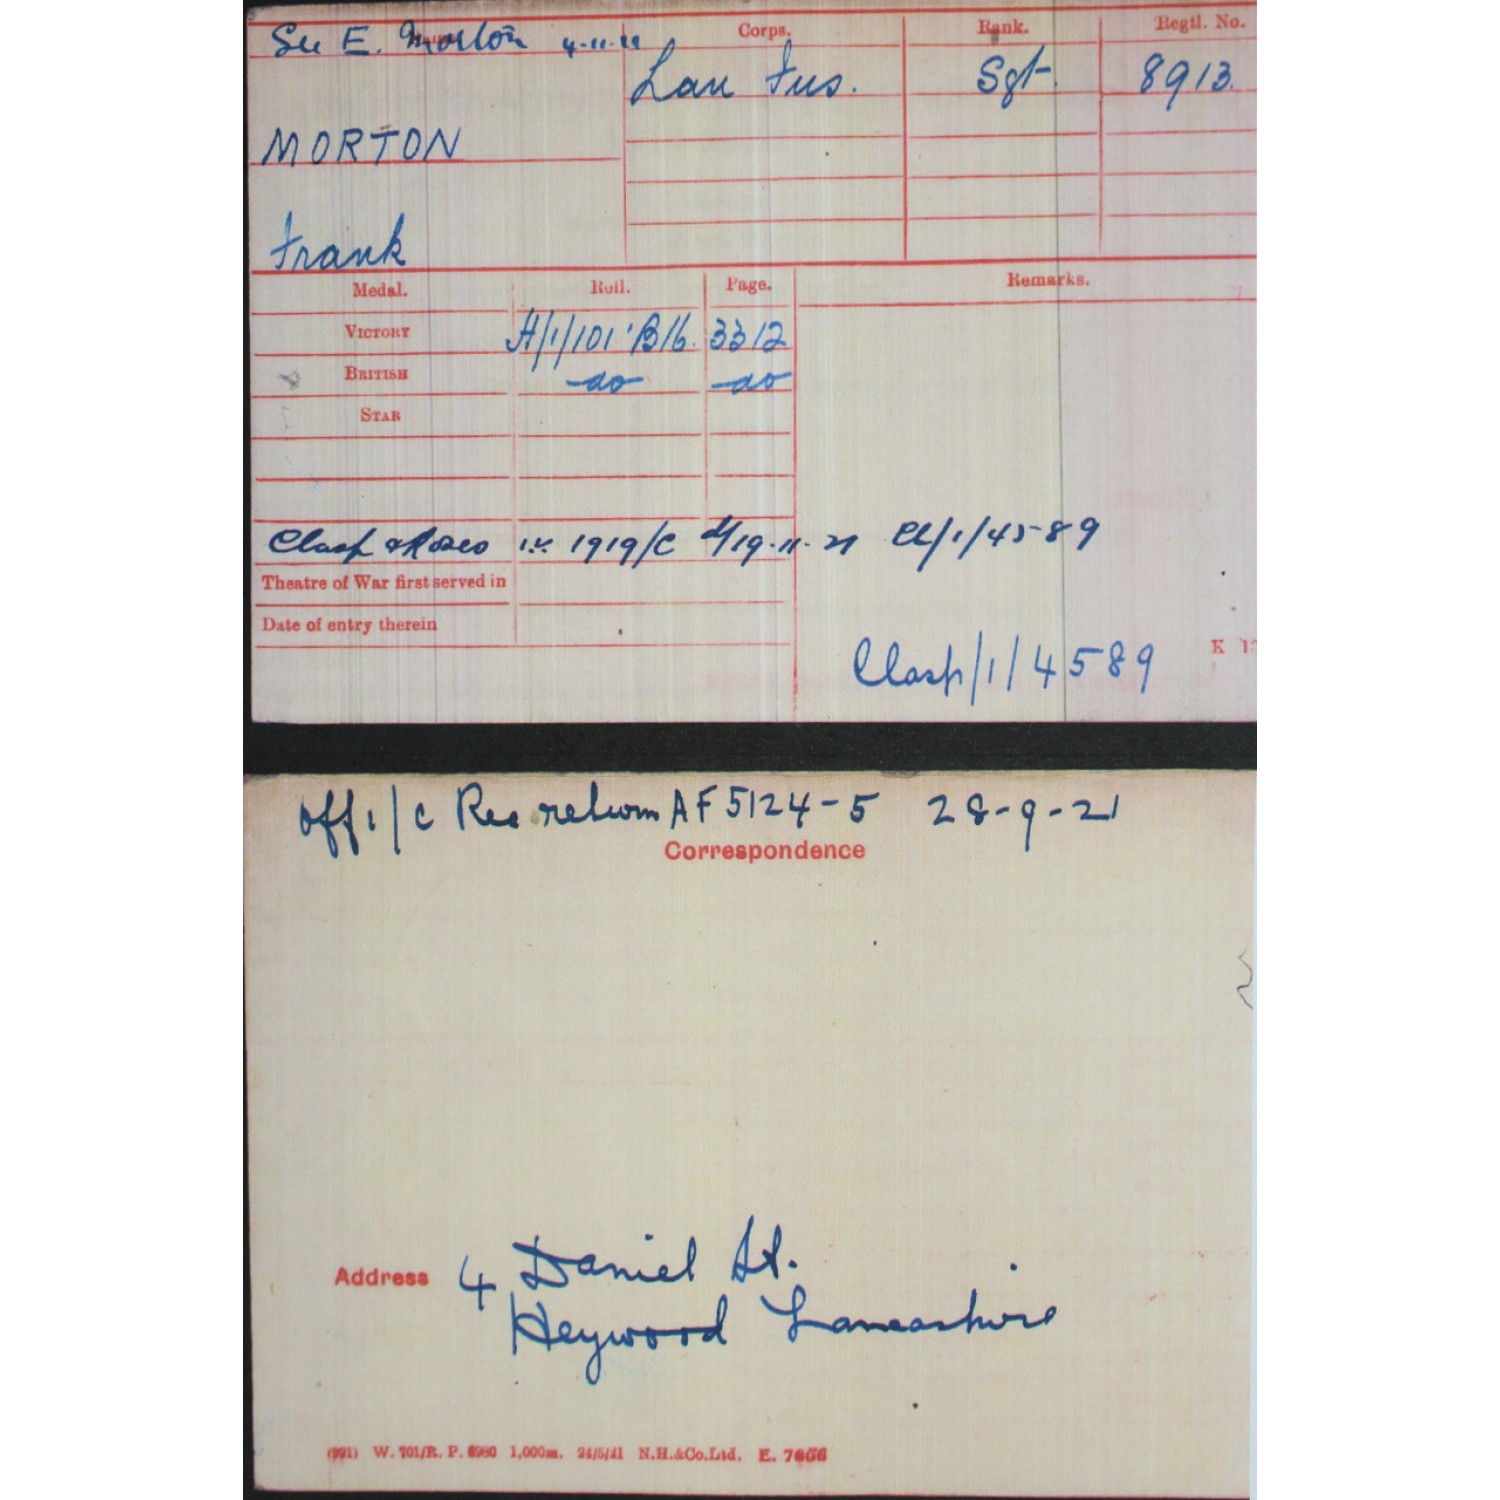 See E. Morton 4-11-21
Corps. Rank. Regtl. No.
Lan Fus. Sgt. 8913.
MORTON
Frank
Medal. Roll. Page. Remarks.
VICTORY H/1/101 B16. 3312
BRITISH -do- -do-
STAR
Clasp & Roses 1919/C d/19.11.21 Cl/1/4589
Theatre of War first served in
Date of entry therein
Clasp/1/4589
K
Off i/c Rec return AF 5124-5 28-9-21
Correspondence
Address 4 Daniel St.
Heywood Lancashire
(991) W. 701/R. P. 6980 1,000m. 24/5/21 N.H.&Co.Ltd. E. 7666